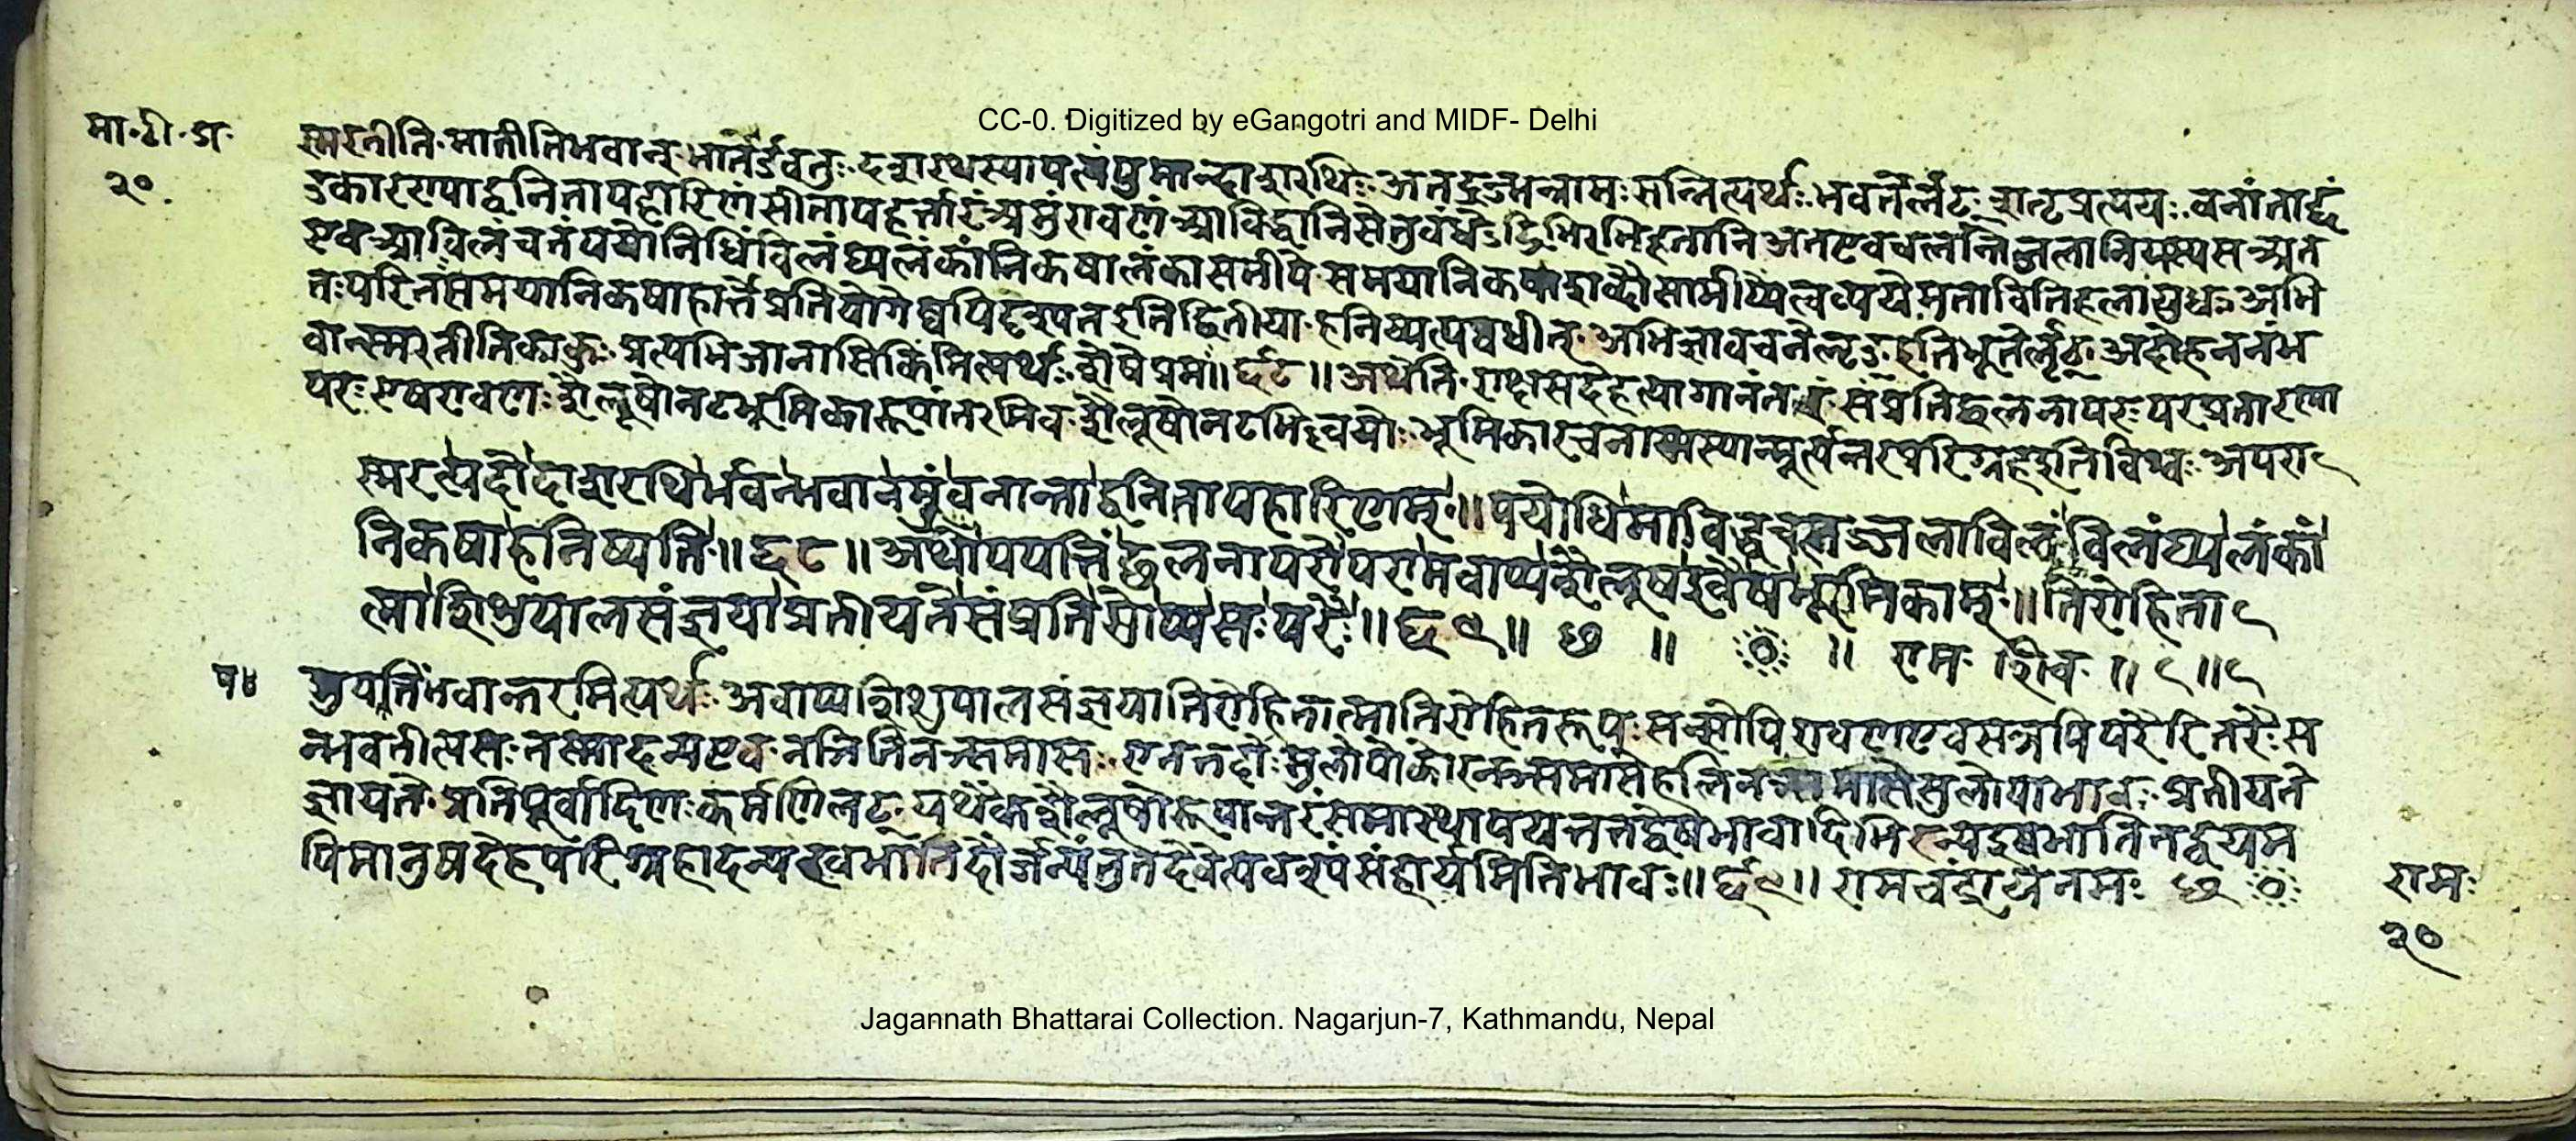 CC-0. Digitized by eGangotri and MIDF- Delhi
मा.टी.प्र.
२०
स्मरतीति मातीतिभवान् भातेर्डवतुः दशरथस्यापत्यंपुमान्दाशरथिः सन्नित्यर्थः भवतेर्लटः शतृप्रत्ययः वनांताद्द
वनितापहारिणं सीतापहर्तारं अमुंरावणं आविद्धानिसेतुबंधे द्रिभिरभिहतानि अतएवचलन्तिजलानियस्यस अत
एव आविलंचतंपयोनिधिंविलंघ्य लंकांनिकषालंकासमीपे समयानिकषाशब्दौसामीप्येत्वव्यये मताविति हलायुधः अभि
तःपरितःसमयानिकषाहाप्रतियोगेष्वपिदृश्यत इति द्वितीया हनिष्यत्यवधीत् अभिज्ञावचनेलृट् इतिभूतेलृट्
वान्स्मरतीतिकाकुः प्रत्यभिजानासिकिमित्यर्थः शेषेप्रथमः ॥ ६८ ॥ अथेति राक्षसदेहत्यागानंतरं संप्रतिछलनापरः परप्रतारणा
परः एषरावणः शैलूषोनटभूमिकारूपांतरमिव शैलूषोनटभिल्लयोः भूमिकारचनायांस्यान्मूर्त्यन्तरपरिग्रहे इतिविश्वः अपरा
स्मरत्यदोदाशरथिर्भवन्भवानमुंवनान्ताद्वनितापहारिणम् ॥ पयोधिमाविद्धचलज्जलाविलंविलंघ्यलंकां
निकषाहनिष्यति ॥ ६८ ॥ अथोपपत्तिंछलनापरोपरामवाप्यशैलूषइवैषभूमिकाम् ॥ तिरोहिता
त्माशिशुपालसंज्ञयाप्रतीयतेसंप्रतिसोप्यसःपरैः ॥ ६९ ॥ छ ॥ ॥ राम शिव ॥
मुपपत्तिंभवान्तरमित्यर्थः अवाप्य शिशुपालसंज्ञयातिरोहितात्मातिरोहितरूपः सन्सोपि रावणएवसन्नपि परैरितरैः स
न्भवतीत्यसः तस्मादन्यएव नञितिनञ्समासः एतत्तदोः सुलोपोकोरनञ्समासेहलिसुलोपाभावः प्रतीयते
ज्ञायते प्रतिपूर्वादिणः कर्मणिलट् यथैकशैलूषोरूपान्तरंसमास्थाय
पिमानुषदेहपरिग्रहादन्यइवभातिदौर्जन्यंतुतदेवेत्यवश्यंसंहार्यमितिभावः ॥ ६९ ॥ रामचंद्रायनमः छ
राम
२०
Jagannath Bhattarai Collection. Nagarjun-7, Kathmandu, Nepal